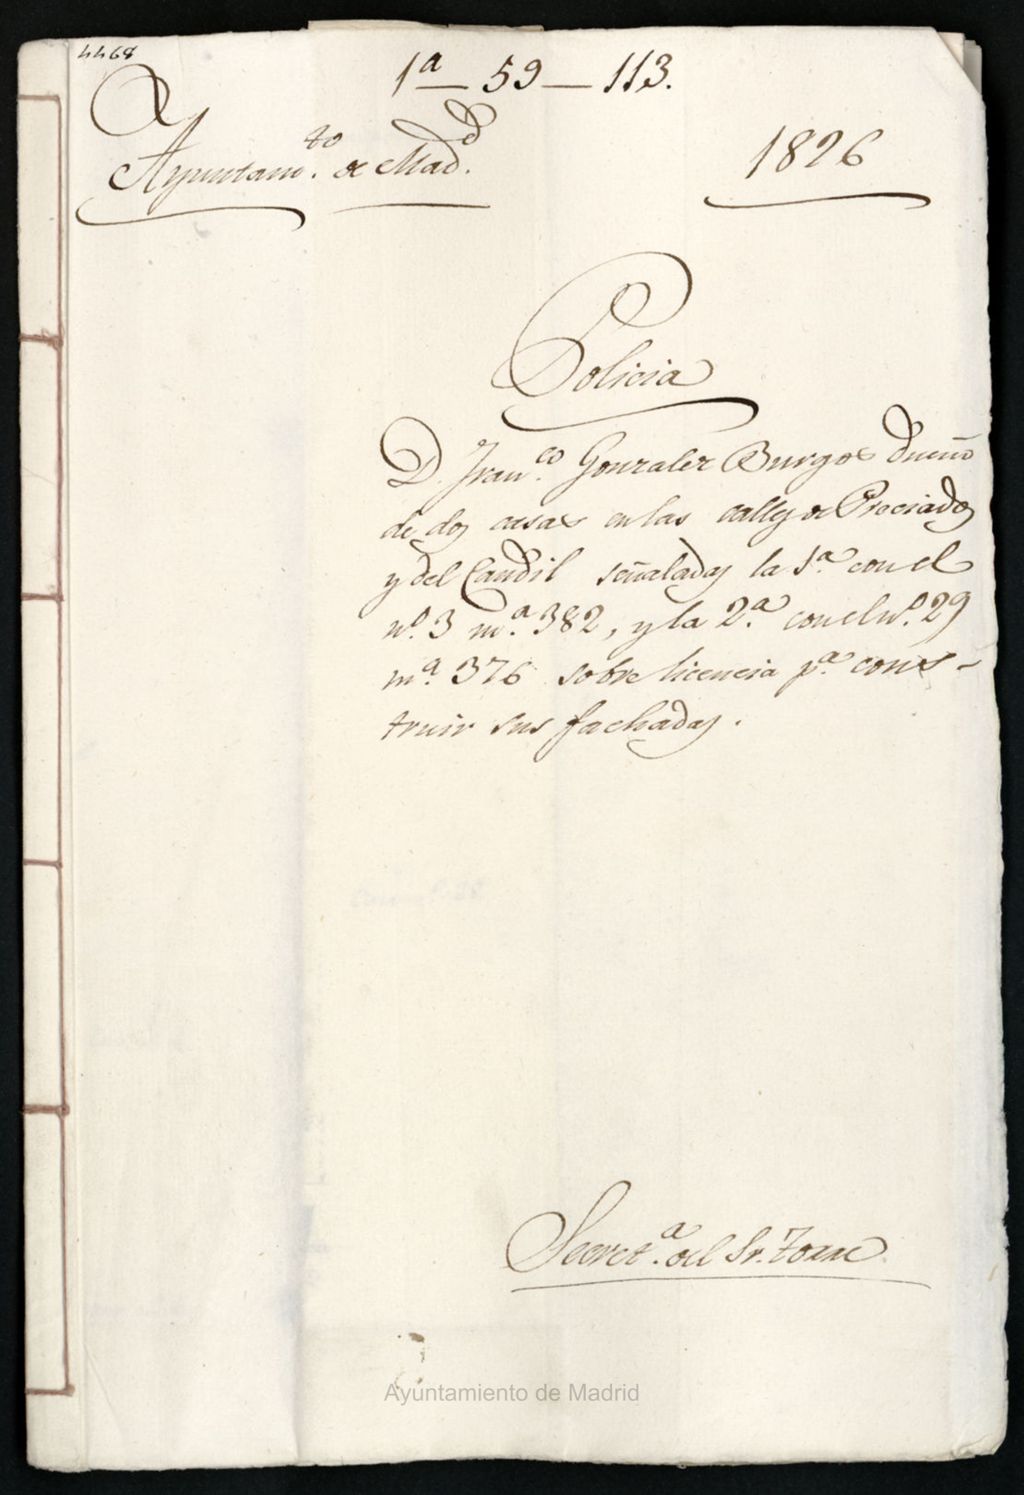 4468
1ª — 59 — 113.
Ayuntamto. de Madd.
1826
Policia
D. Franco. Gonzalez Burgos dueño
de dos casas en las calles de Preciados
y del Candil señaladas la 1ª con el
nº. 3 mª. 382, y la 2ª. con el nº. 29
mª. 376 sobre licencia pª. cons-
truir sus fachadas.
Secretª. del Sr.
Ayuntamiento de Madrid